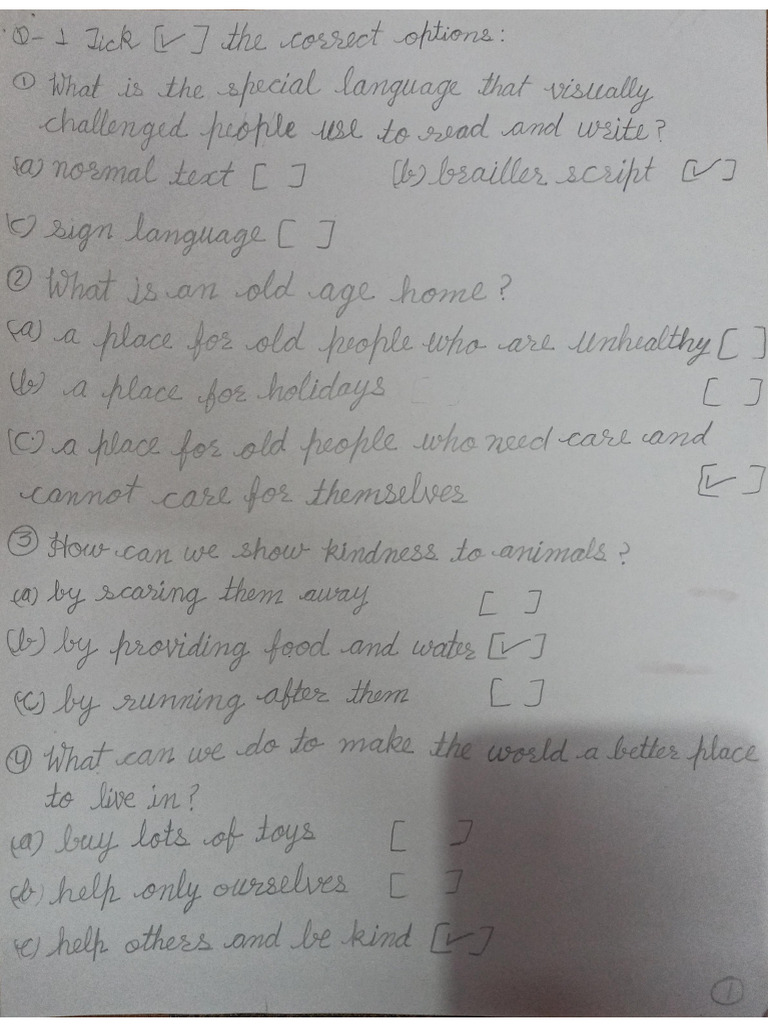 Q-1 Tick [✓] the correct options:
① What is the special language that visually
challenged people use to read and write?
(a) normal text [ ] (b) brailler script [✓]
(c) sign language [ ]
② What is an old age home?
(a) a place for old people who are unhealthy [ ]
(b) a place for holidays [ ]
(c) a place for old people who need care and
cannot care for themselves [✓]
③ How can we show kindness to animals?
(a) by scaring them away [ ]
(b) by providing food and water [✓]
(c) by running after them [ ]
④ What can we do to make the world a better place
to live in?
(a) buy lots of toys [ ]
(b) help only ourselves [ ]
(c) help others and be kind [✓]
①